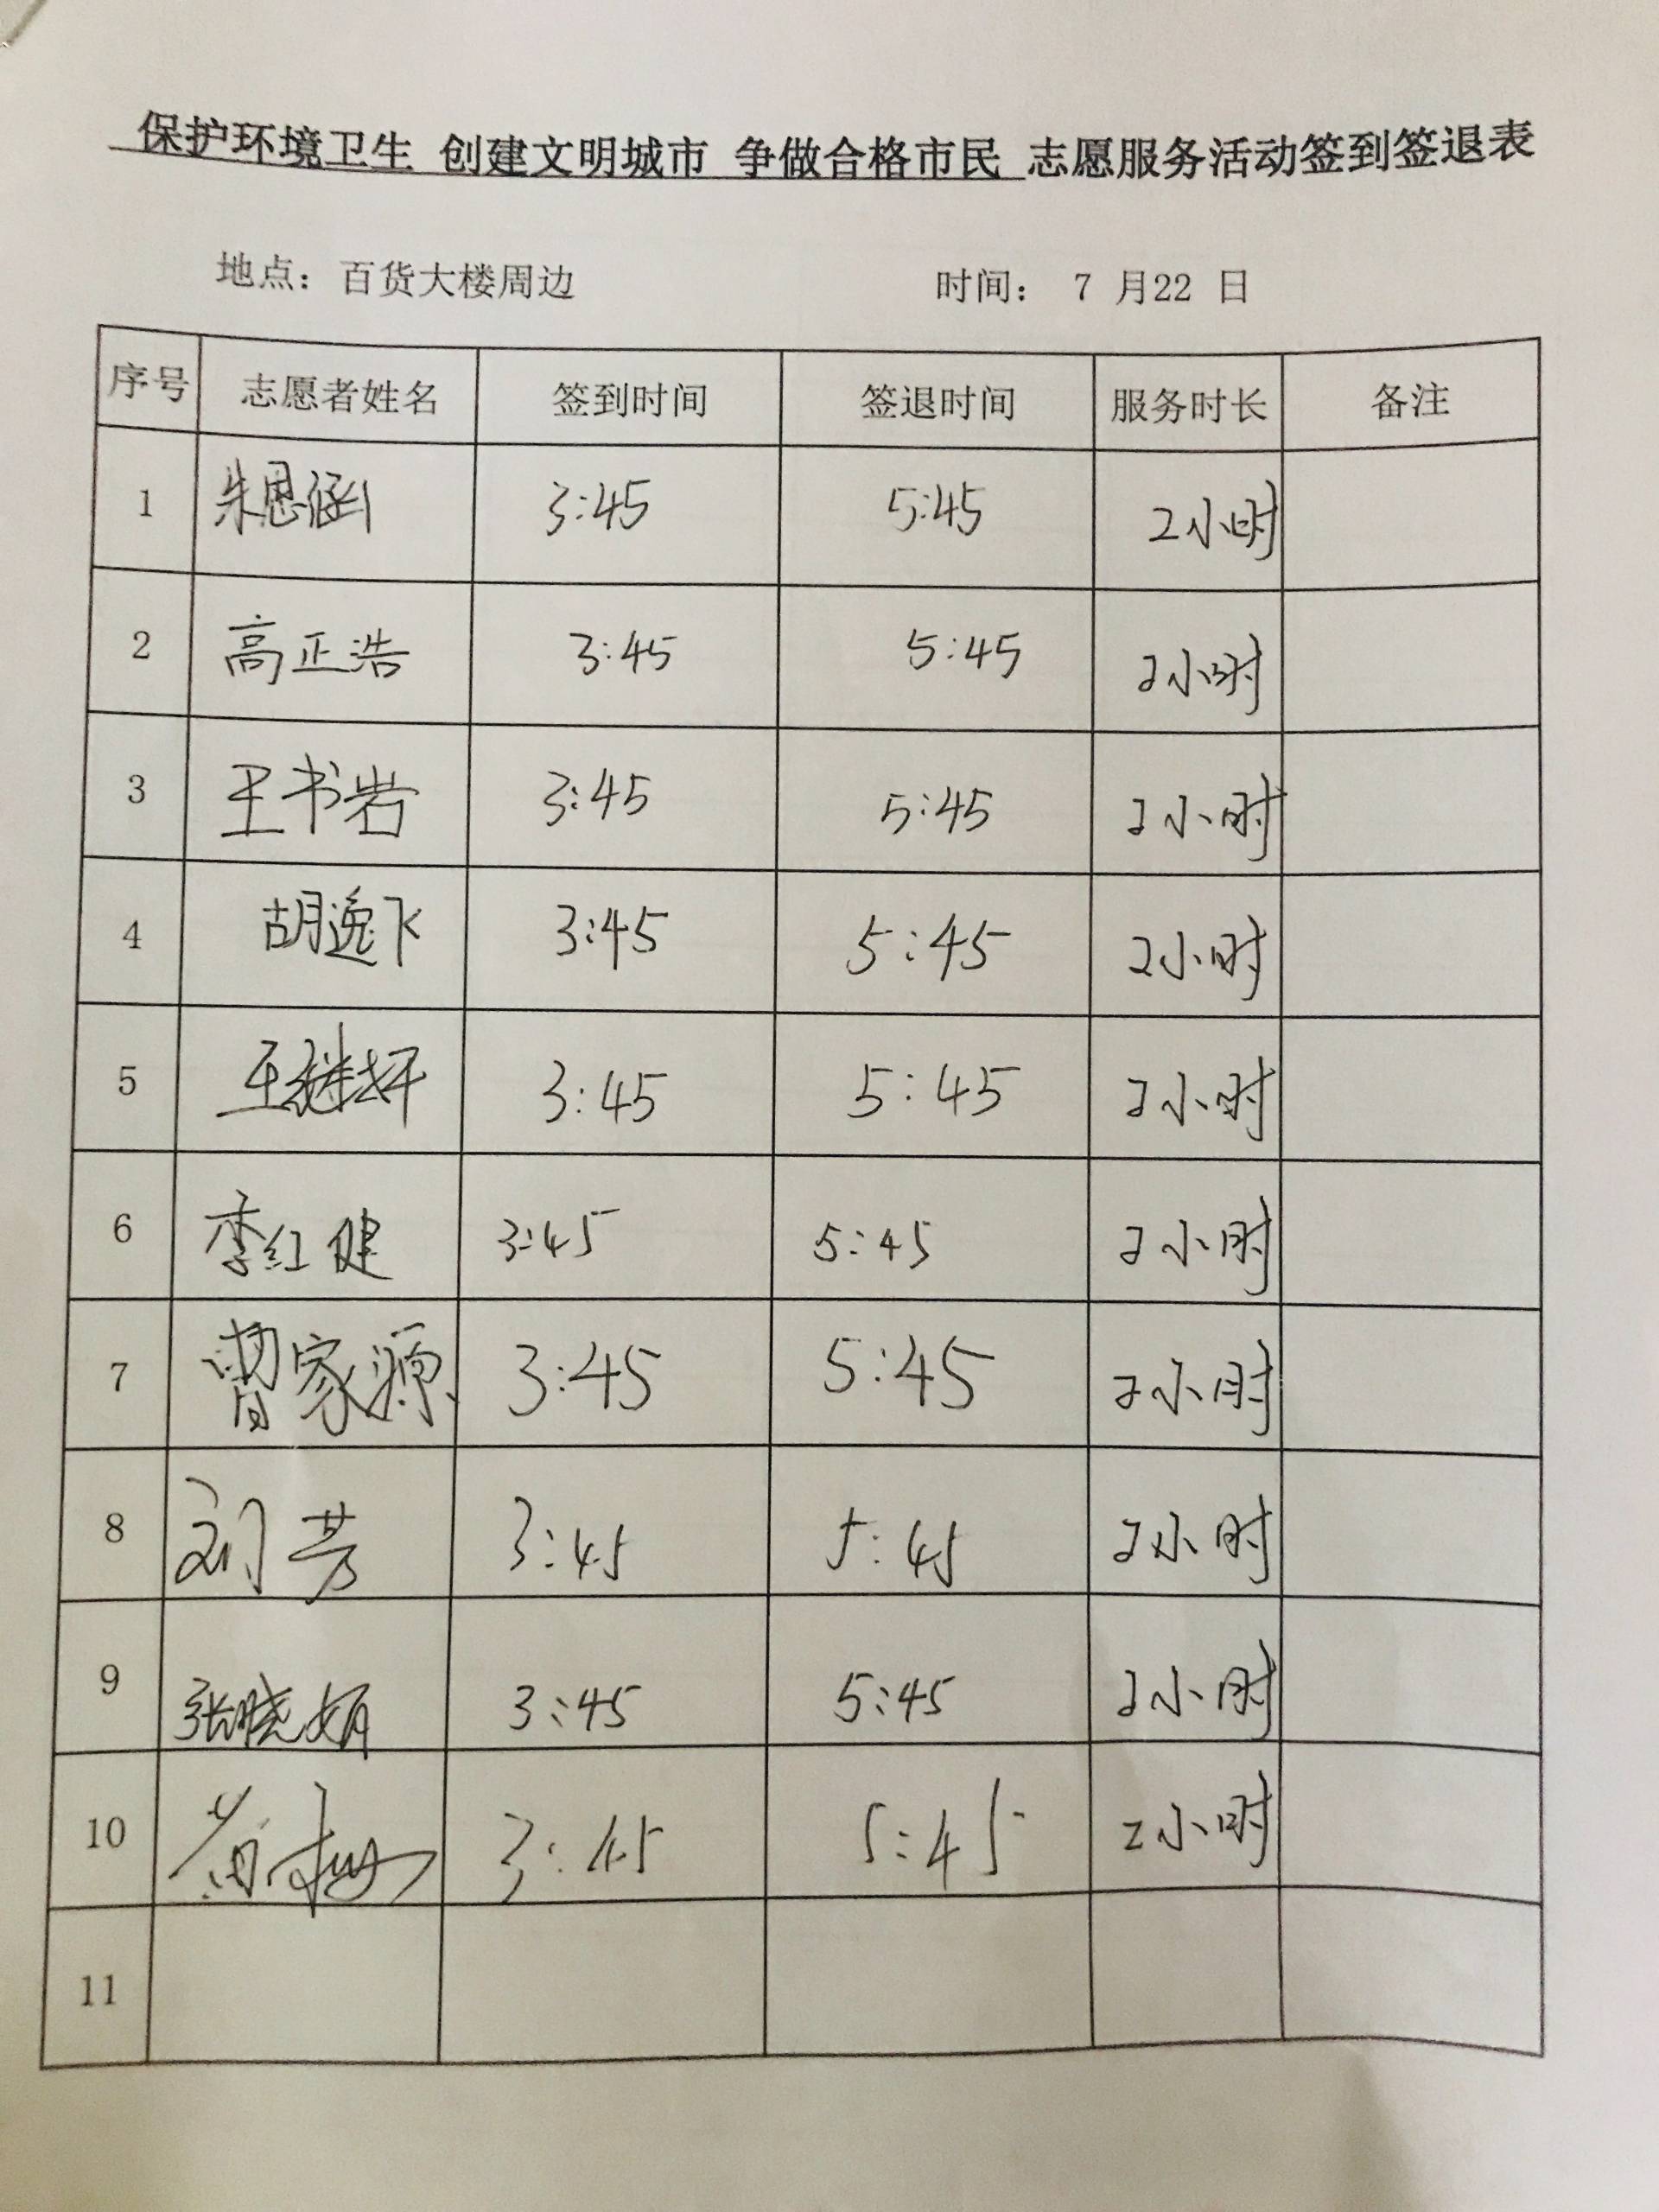 保护环境卫生 创建文明城市 争做合格市民 志愿服务活动签到签退表
地点：百货大楼周边 时间： 7 月22 日
序号 志愿者姓名 签到时间 签退时间 服务时长 备注
1 朱思涵 3:45 5:45 2小时
2 高正浩 3:45 5:45 2小时
3 王书岩 3:45 5:45 2小时
4 胡逸飞 3:45 5:45 2小时
5 王继妍 3:45 5:45 2小时
6 李红健 3:45 5:45 2小时
7 曹家源 3:45 5:45 2小时
8 刘芳 3:45 5:45 2小时
9 张晓娟 3:45 5:45 2小时
10 3:45 5:45 2小时
11